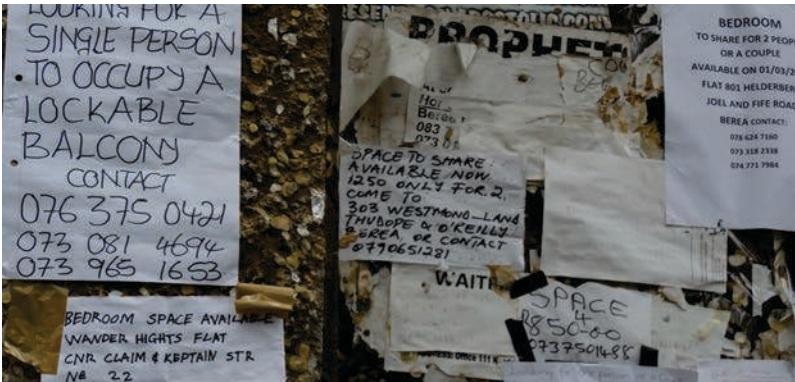 LOOKING FOR A
SINGLE PERSON
TO OCCUPY A
LOCKABLE
BALCONY
CONTACT
076 375 0421
073 081 4694
073 965 1653
BEDROOM SPACE AVAILABLE
WANDER HIGHTS FLAT
CNR CLAIM & KEPTAIN STR
NE 22
PROPHET
Berea
083
SPACE TO SHARE:
AVAILABLE NOW
1250 ONLY FOR 2.
COME TO
303 WESTMOND-LAND
THUDOPE & O'REILLY
BEREA, OR CONTACT
0790651281
WAIT
SPACE
4
R850-00
0737501488
Office 111
BEDROOM
TO SHARE FOR 2 PEOP
OR A COUPLE
AVAILABLE ON 01/03/2
FLAT 801 HELDERBER
JOEL AND FIFE ROAD
BEREA CONTACT:
078 624 7160
073 318 2338
074 771 7984